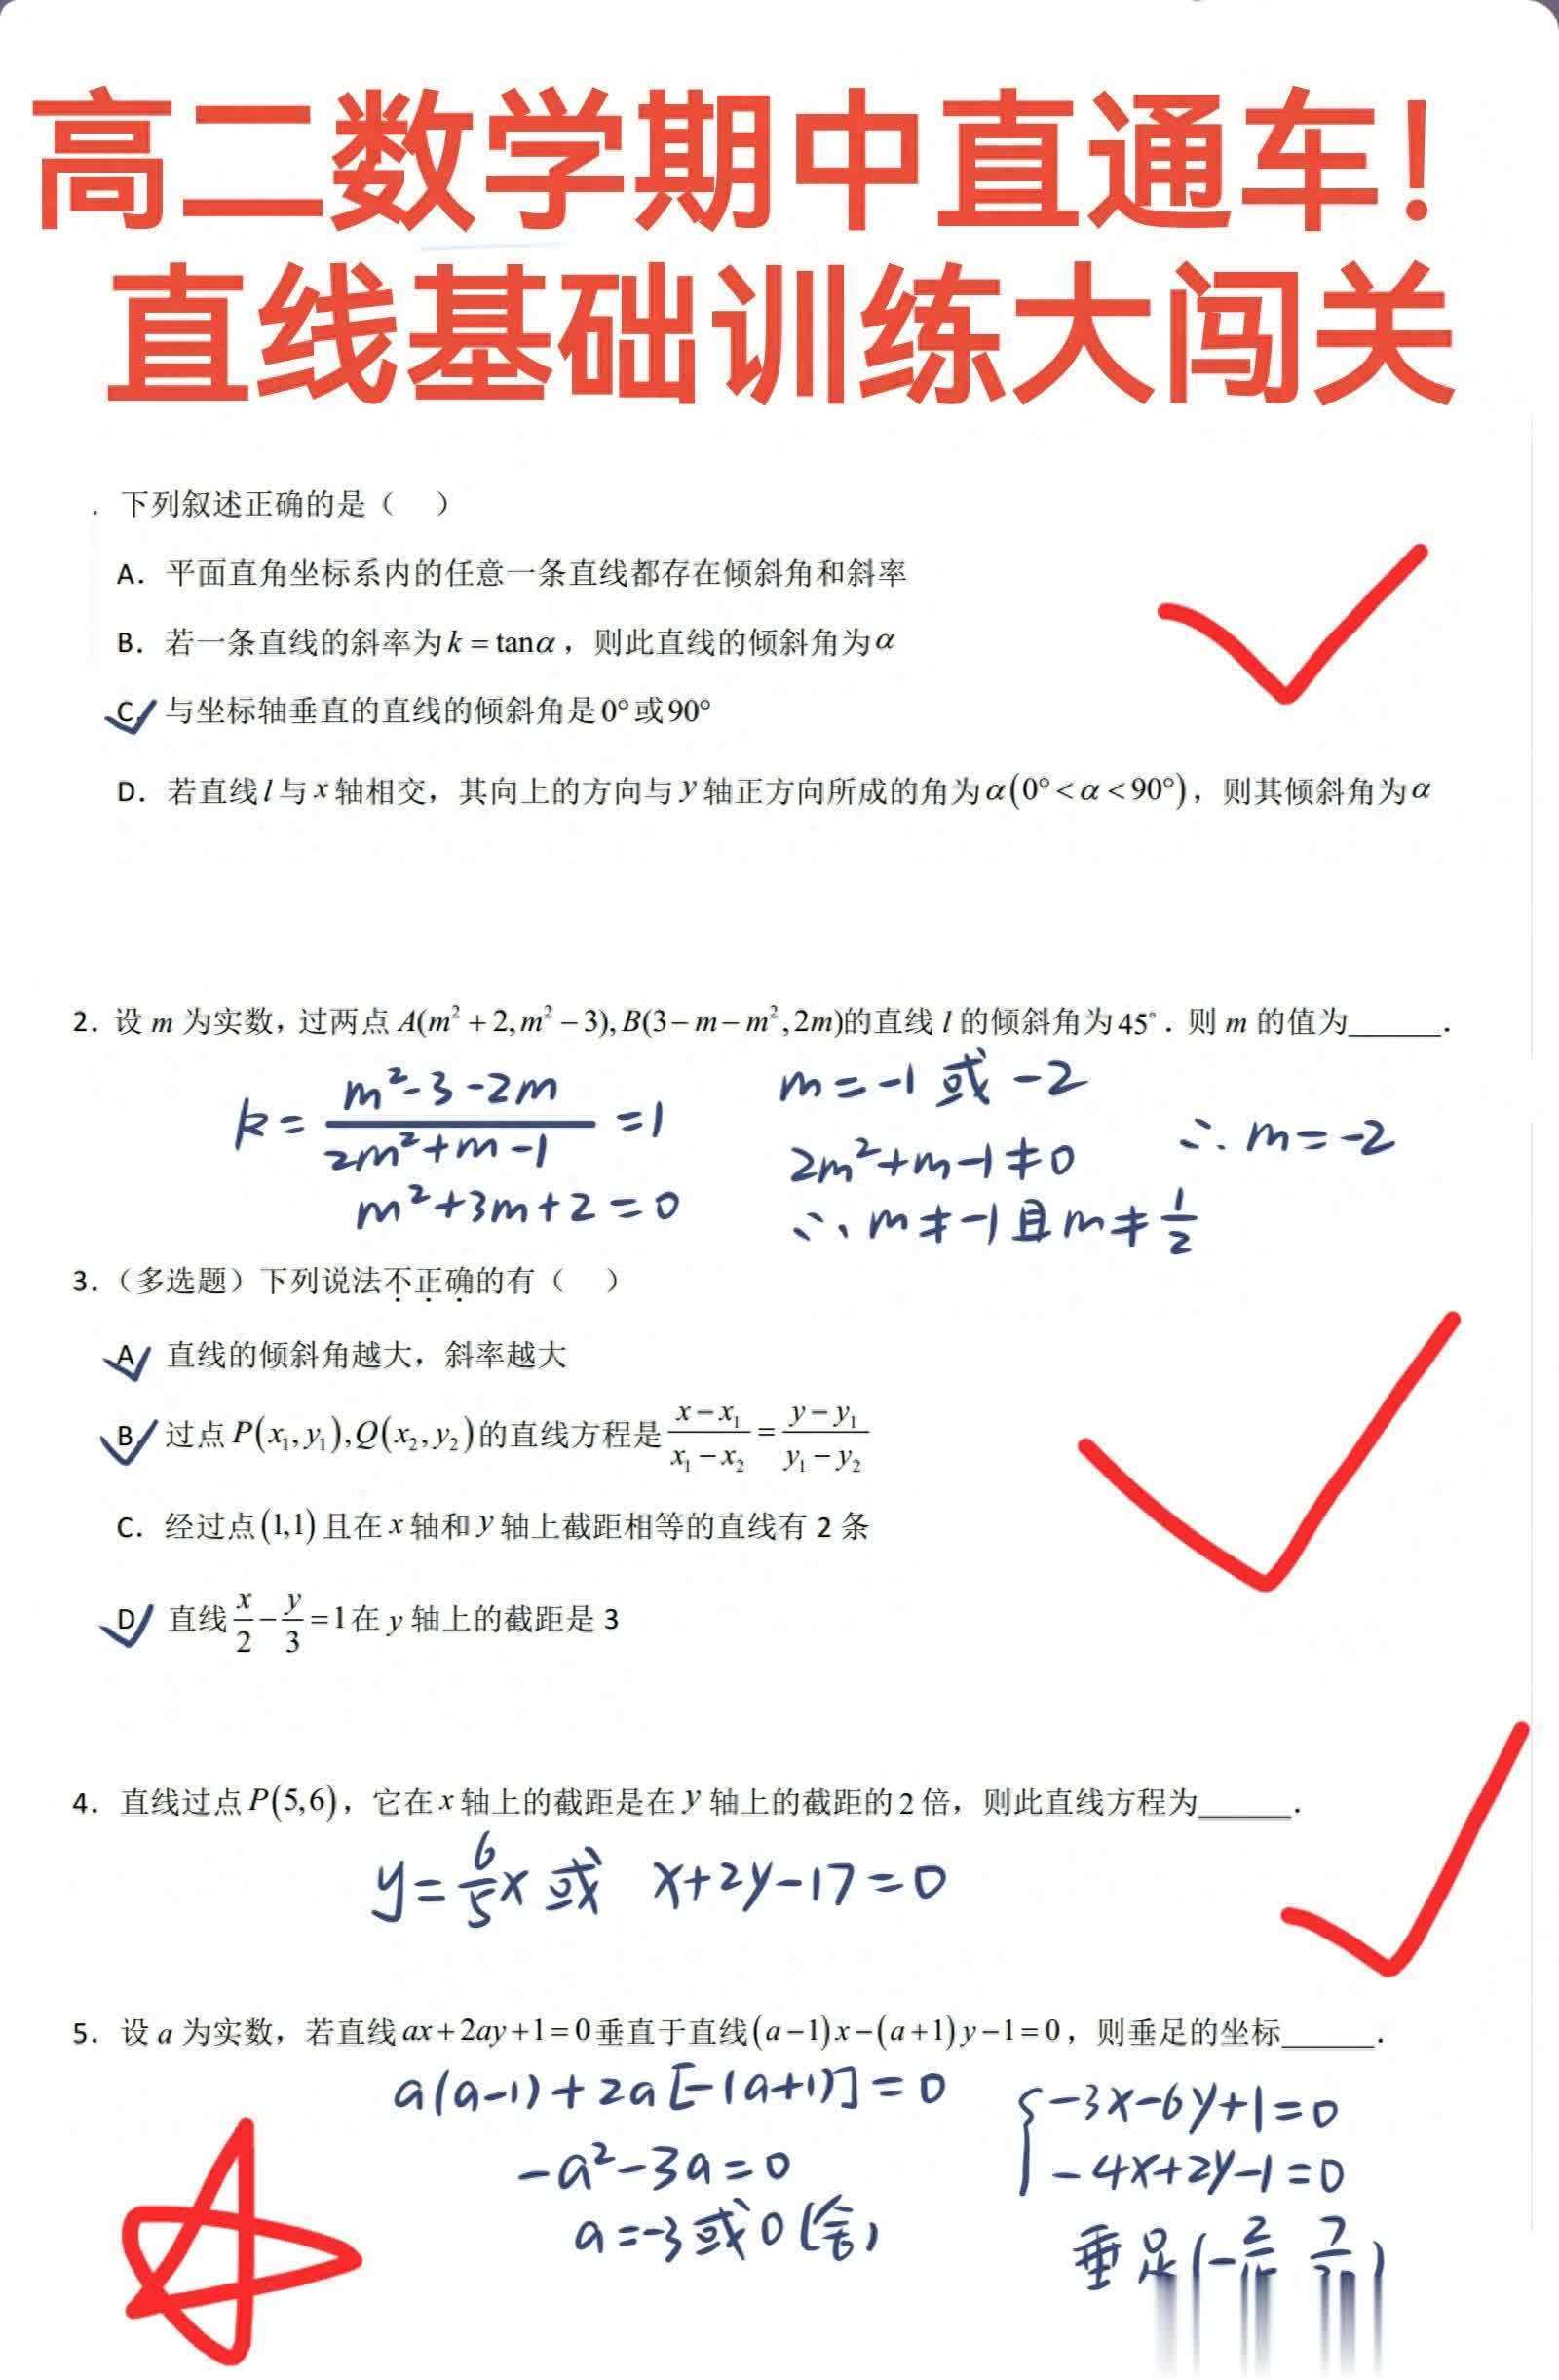 高二数学期中直通车!
直线基础训练大闯关
. 下列叙述正确的是（ ）
A. 平面直角坐标系内的任意一条直线都存在倾斜角和斜率
B. 若一条直线的斜率为k=tanα，则此直线的倾斜角为α
C. 与坐标轴垂直的直线的倾斜角是0°或90°
D. 若直线l与x轴相交，其向上的方向与y轴正方向所成的角为α(0°<α<90°)，则其倾斜角为α
2. 设 m 为实数，过两点 A(m²+2,m²-3),B(3-m-m²,2m)的直线 l 的倾斜角为45°. 则 m 的值为______.
k=(m²-3-2m)/(2m²+m-1)=1
m²+3m+2=0
m=-1或-2
2m²+m-1≠0
∴m≠-1且m≠1/2
∴m=-2
3.（多选题）下列说法不正确的有（ ）
A 直线的倾斜角越大，斜率越大
B. 过点P(x₁,y₁),Q(x₂,y₂)的直线方程是(x-x₁)/(x₁-x₂)=(y-y₁)/(y₁-y₂)
C. 经过点(1,1)且在x轴和y轴上截距相等的直线有 2 条
D 直线x/2-y/3=1在 y 轴上的截距是 3
4. 直线过点P(5,6)，它在x轴上的截距是在y轴上的截距的2倍，则此直线方程为______.
y=6/5x或 x+2y-17=0
5. 设 a 为实数，若直线ax+2ay+1=0垂直于直线(a-1)x-(a+1)y-1=0，则垂足的坐标______.
a(a-1)+2a[-(a+1)]=0
-a²-3a=0
a=-3或0(舍)
{-3x-6y+1=0
-4x+2y-1=0
垂足